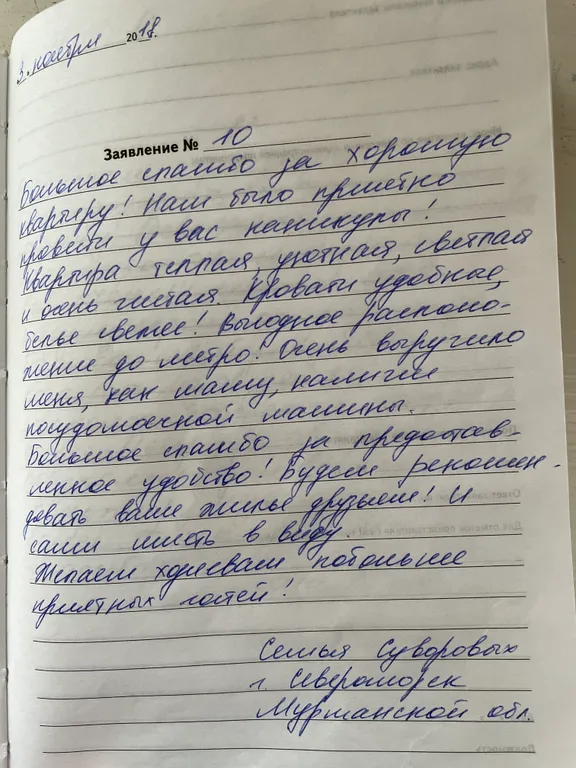 3. ноября 2018.
Заявление № 10
Большое спасибо за хорошую
квартиру! Нам было приятно
провести у вас каникулы!
Квартира теплая, уютная, светлая
и очень чистая. Кровати удобные,
белье свежее! Выгодное располо-
жение до метро! Очень выручило
меня, как маму, наличие
посудомоечной машины.
Большое спасибо за предостав-
ленное удобство! Будем рекомен-
довать ваше жилье друзьям! И
сами иметь в виду.
Желаем хозяевам побольше
приятных гостей!
Семья Суворовых
г. Североморск
Мурманской обл.